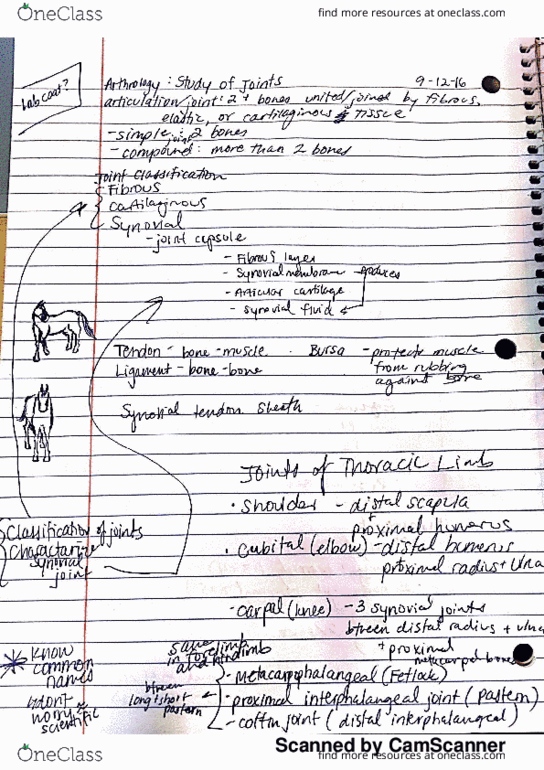 OneClass
find more resources at oneclass.com
Lab coat?
Arthrology : Study of Joints 9-12-16
articulation/joint: 2+ bones united/joined by fibrous,
elastic, or cartilaginous tissue
- simple joint: 2 bones
- compound: more than 2 bones
Joint Classification
Fibrous
Cartilaginous
Synovial
- joint capsule
- Fibrous layer
- Synovial membrane produces
- Articular cartilage
- synovial fluid
Tendon - bone - muscle . Bursa - protects muscle
Ligament - bone - bone from rubbing
against bone
Synovial tendon sheath
Joints of Thoracic Limb
• Shoulder - distal scapula
+
proximal humerus
• Cubital (elbow) - distal humerus
proximal radius + ulna
Classification of joints
Characterize
synovial
joint
- carpal (knee) - 3 synovial joints
btween distal radius + ulna
+ proximal
metacarpal bones
* Know
common
names
Wdont
worry
scientific
same
in forelimb
and hindlimb
btween
long + short
pastern
- Metacarpophalangeal (Fetlock)
- proximal interphalangeal joint (pastern)
- coffin joint (distal interphalangeal)
Scanned by CamScanner
OneClass
find more resources at oneclass.com